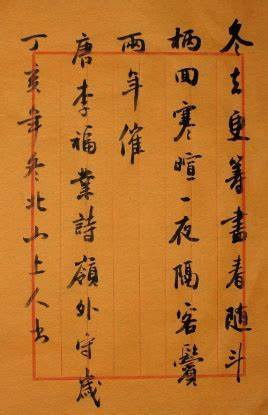 冬去更籌盡春隨斗
柄回寒暄一夜隔客鬢
兩年催
唐李福業詩嶺外守歲
丁亥年冬北山上人书